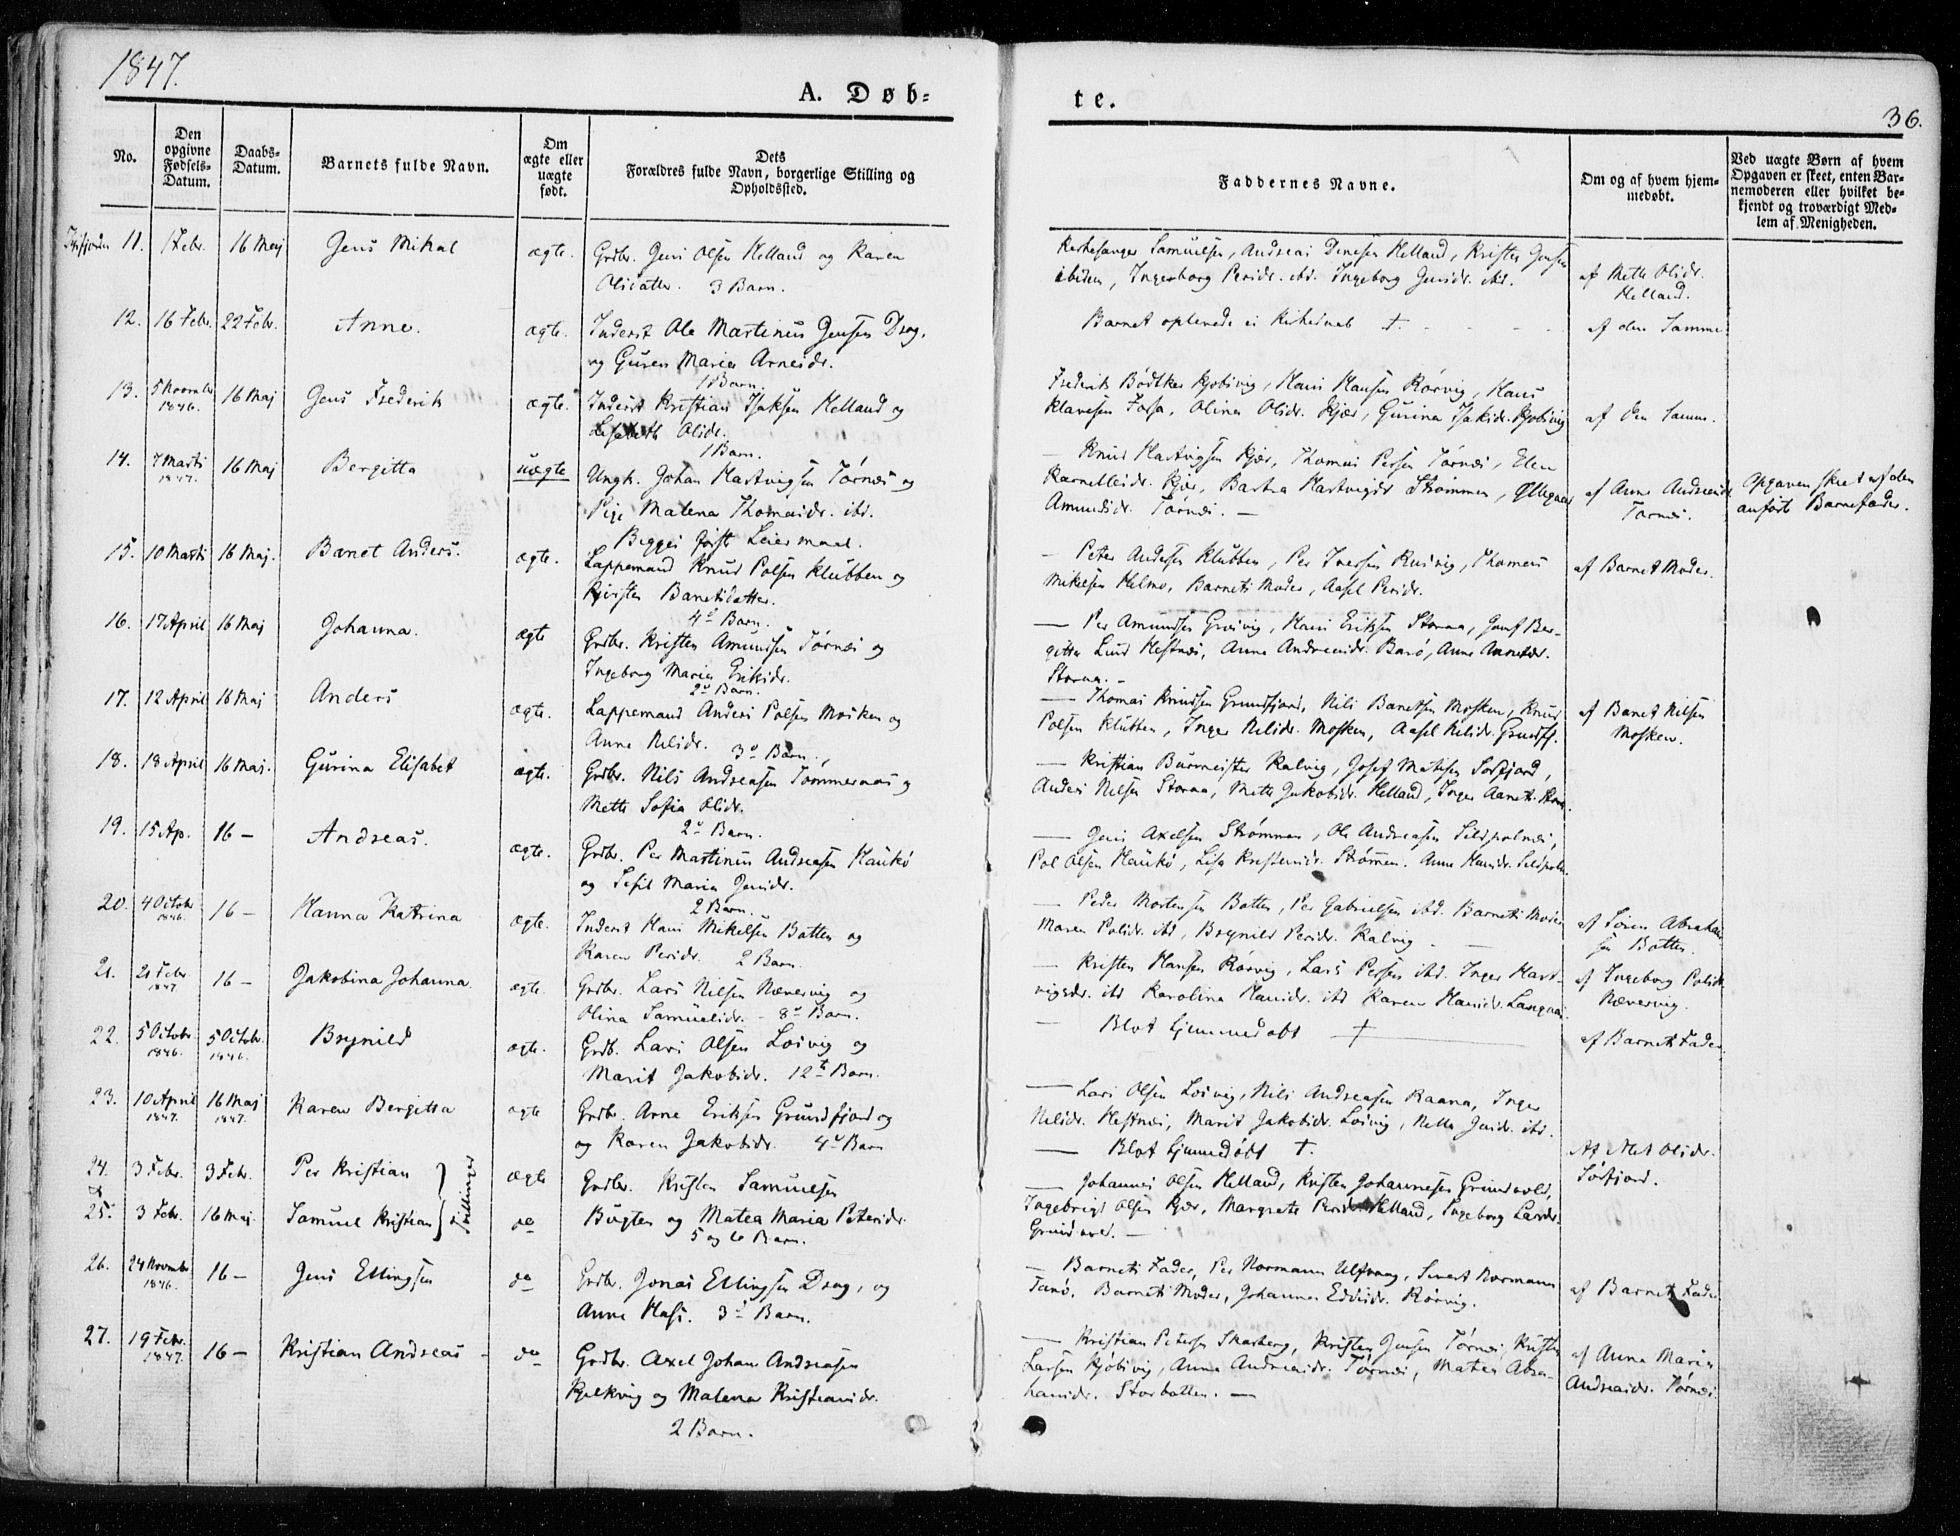 1847.
A. Døb-
te.
36.
No.
Den opgivne Fødsels-Datum.
Daabs-Datum.
Barnets fulde Navn.
Om ægte eller uægte født.
Dets Forældres fulde Navn, borgerlige Stilling og Opholdssted.
Faddernes Navne.
Om og af hvem hjemmedøbt.
Ved uægte Børn af hvem Opgaven er skeet, enten Barnemoderen eller hvilket bekjendt og troværdigt Medlem af Menigheden.
11. 1 Febr. 16 Maj Jens Mikal ægte. Grdbr. Jens Olsen Helland og Karen
Olidatter. 3 Barn.
Kirkesanger Samuelsen, Andreas Helland, Kristen Jensen
ibidem, Ingeborg Persdr. ibd. Ingeborg Jensdr. ibd.
af Mette Olidr.
Helland.
12. 16 Febr. 22 Febr. Anne. ægte. Inderst Ole Martinus Jensen Drag,
og Guren Maria Arnesdr.
1 Barn.
Barnet oplevede ei †
af den Samme
13. 5 Novembr 1846. 16 Maj Jens Frederik ægte. Inderst Kristian Isaksen Helland og
Lisabeth Olidr.
1 Barn.
Frederik Bødtker Kjobsvig, Hans Hansen Rørvig, Hans
Klavesen Forsa, Olina Olidr. Kjær, Gurina Isaksdr. Kjobsvig
af den Samme.
14. 7 Marts 1847. 16 Maj Bergitta uægte Ungk. Johan Hartvigsen Tørnæs og
Pige Malena Thomasdr. ibd.
Begges første Leiermaal.
— Knud Hartvigsen Kjær, Thomas Persen Tørnæs, Elen
Kjær, Hartvigsdr Strømmen,
Amundsdr. Tørnæs. —
af Anne Andreasdr
Tørnæs.
Opgaven skeet af den
anførte Barnefader.
15. 10 Marts 16 Maj. Banet Anders. ægte. Lappemand Knud Polsen Klubben og
Kjirsten Banetsdatter.
4de Barn.
— Peter Andersen Klubben, Per Iversen Rusvig, Thomas
Mikelsen Helmo, Barnets Moder, Aasel Persdr.
af Barnets Moder.
16. 17 April 16 Maj Johanna. ægte Grdbr. Kristen Amundsen Tørnæs og
Ingeborg Maria Eriksdr.
2de Barn.
— Per Amundsen Grøsvig, Hans Eriksen Storaa, Ber-
gitta Lund Hestnæs, Anne Andreasdr. Barø, Anne
Storaa. —
17. 12 April 16 Maj Anders ægte. Lappemand Anders Polsen Mosken og
Anne Nilsdr. 3de Barn.
— Thomas Knudsen Grundfjord, Nils Banetsen Mosken, Knud
Polsen Klubben, Inger Nilsdr. Mosken, Aasel Nilsdr. Grundfj.
af Banet Nilsen
Mosken.
18. 18 April 16 Maj. Gurina Elisabet ægte. Grdbr. Nils Andreasen Tommernæs og
Mette Sofia Olidr.
2de Barn.
— Kristian Burmeister Kalvig, Josef Matisen Sørfjord,
Anders Nilsen Storaa, Mette Jakobsdr. Helland, Inger
19. 15 Ap. 16 — Andreas. ægte. Grdbr. Per Martinus Andreasen Haukø
og Sefil Maria Jensdr.
2 Barn.
— Jens Axelsen Strømmen, Ole Andreasen Sildpolnæs,
Pol Olsen Haukø, Lisa Kristensdr. Strømen. Anne Hansdr. Sildpoln.
20. 4 Octobr 1846. 16 — Hanna Katrina ægte. Inderst Hans Mikelsen Botten og
Karen Persdr. 2 Barn.
— Peder Mortensen Botten, Per Gabrielsen ibd. Barnets Moder
Maren Polsdr. ibd, Brynild Persdr. Kalvig.
af Sören Abraham-
sen Botten.
21. 21 Febr 1847. 16 — Jakobina Johanna ægte. Grdbr. Lars Nilsen Nævervig og
Olina Samuelsdr. — 8de Barn.
— Kristen Hansen Rørvig, Lars Persen ibd. Inger Hart-
vigsdr. ibd Karolina Hansdr. ibd Karen Hansdr. Langnæs.
af Ingeborg Polsdr
Nævervig.
22. 5 Octobr. 1846. 5 Octobr. 1846. Brynild ægte. Grdb. Lars Olsen Losvig og
Marit Jakobsdr. 12te Barn.
— Blot hjemmedøbt †
af Barnets Fader.
23. 10 April 1847. 16 Maj 1847. Karen Bergitta ægte Grdbr. Arne Eriksen Grundfjord og
og Karen Jakobsdr. 4de Barn
— Lars Olsen Losvig, Nils Andreasen Raana, Inger
Nilsdr. Hestnæs, Marit Jakobsdr Losvig, Jensdr. ibd.
24. 3 Febr. 3 Febr. Per Kristian Tvillinger ægte Grdbr. Kristen Samuelsen
— Blot hjemmedøbt †.
Af Met Olidr.
Sørfjord.
25. 3 Febr. 16 Maj. Samuel Kristian do Bugten og Matea Maria Petersdr.
5 og 6 Barn.
— Johannes Olsen Helland, Kristen Johannesen Grundvold,
Ingebrigt Olsen Kjær, Margrete Persdr Helland, Ingeborg Larsdr.
Grundvold. —
26. 24 Novembr 1846. 16 — Jens Ellingsen do Grdbr. Jonas Ellingsen Drag, og
Anne Hass. 3de Barn.
— Barnets Fader, Per Normann Ulfvaag, Sivert Normann
Tanø. Barnets Moder, Johanna Rørvig.
af Barnets Fader
27. 19 Febr. 1847. 16 — Kristian Andreas — do Grdbr. Axel Johan Andreasen
Kjelkvig og Malena Kristiansdr.
2 Barn.
— Kristian Petersen Skarberg, Kristen Jensen Tørnæs, Kristen
Larsen Kjobsvig, Anne Andreasdr. Tørnæs, Matea Abra-
hamsdr. Storbotten. —
af Anna Maria
Andreasdr. Tørnæs